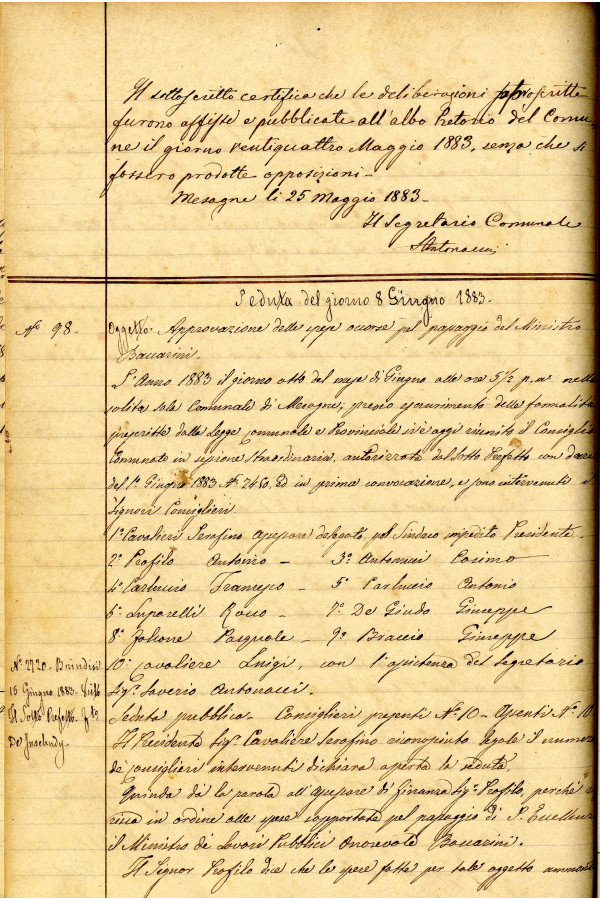 Il sottoscritto certifica che le deliberazioni soprascritte
furono affisse e pubblicate all'albo Pretorio del Comu=
ne il giorno ventiquattro Maggio 1883, senza che si
fossero prodotte opposizioni_
Mesagne li 25 Maggio 1883_
Il Segretario Comunale
SAntonacci
Seduta del giorno 8 Giugno 1883.
N.º 98.
Oggetto. Approvazione delle spese occorse pel passaggio del Ministro
Baccarini.
L'Anno 1883 il giorno otto del mese di Giugno alle ore 5½ p.m nella
solita sala Comunale di Mesagne, previo esaurimento delle formalità
prescritte dalla Legge Comunale e Provinciale si è oggi riunito il Consiglio
Comunale in sessione Straordinaria, autorizzata dal Sotto Prefetto con
del 1º Giugno 1883 Nº 2450, Ed in prima convocazione, e sono intervenuti i
Signori Consiglieri
1º Cavalieri Serafino assessore delegato, pel Sindaco impedito Presidente_
2º Profilo Antonio _ 3º Antonucci Cosimo
4º Carluccio Francesco _ 5º Carluccio Antonio
6º Luparelli Rocco _ 7º De Guido Giuseppe
8º Falcone Pasquale _ 9º Braccio Giuseppe
10º Cavaliere Luigi, con l'assistenza del Segretario
Sigr. Saverio Antonacci.
Seduta pubblica_ Consiglieri presenti Nº 10_ Assenti Nº 10
Il Presidente Sigr. Cavaliere Serafino riconosciuto legale il numero
de' consiglieri intervenuti dichiara aperta la seduta.
Quindi dà la parola all'Assessore di Finanza Sigr. Profilo, perchè
in ordine alle spese sopportate pel passaggio di S. Eccellenza
il Ministro de' Lavori Pubblici Onorevole Baccarini.
Il Signor Profilo dice che le spese fatte per tale oggetto
Nº 2720_ Brindisi
15 Giugno 1883. Visto
Il Sotto Prefetto. fto